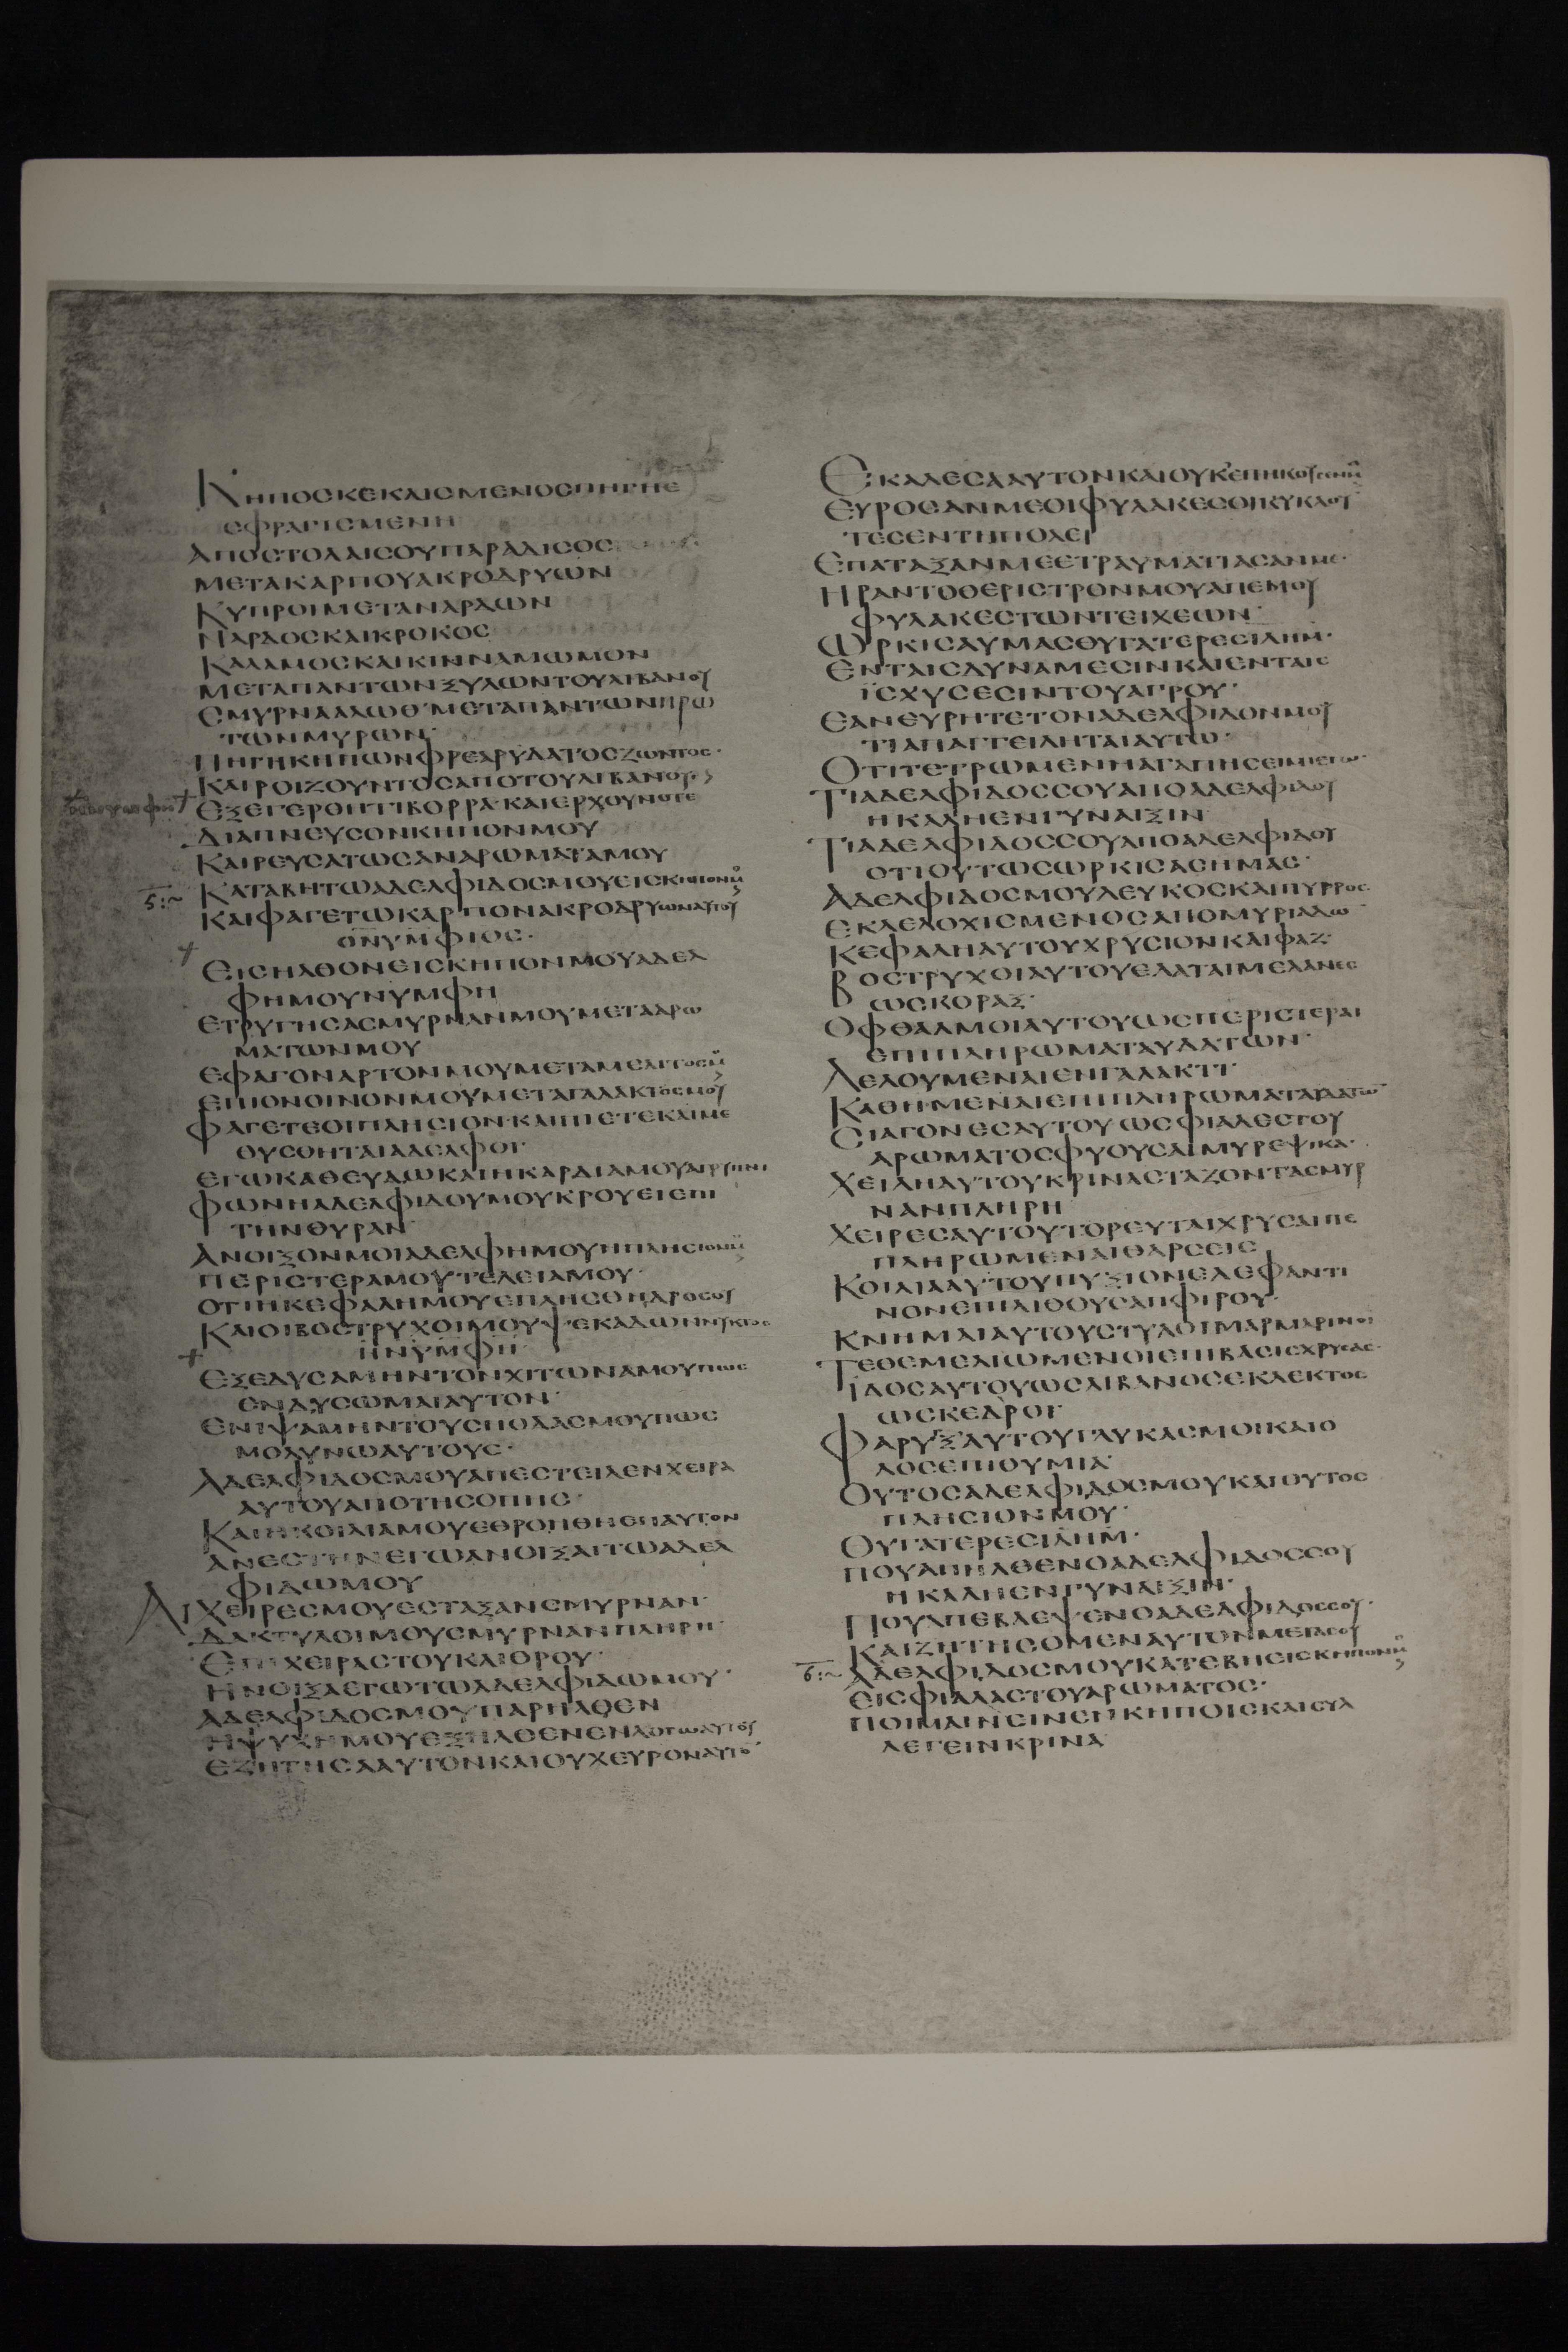 ΚΗΠΟϹΚΕΚΛΙϹΜΕΝΟϹΠΗΓΗΕ
ϹΦΡΑΓΙϹΜΕΝΗ
ΑΠΟϹΤΟΛΑΙϹΟΥΠΑΡΑΔΙϹΟϹ
ΜΕΤΑΚΑΡΠΟΥΑΚΡΟΔΡΥΩΝ
ΚΥΠΡΟΙΜΕΤΑΝΑΡΔΩΝ
ΝΑΡΔΟϹΚΑΙΚΡΟΚΟϹ
ΚΑΛΑΜΟϹΚΑΙΚΙΝΝΑΜΩΜΟΝ
ΜΕΤΑΠΑΝΤΩΝΞΥΛΩΝΤΟΥΛΙΒΑΝΟΥ
ϹΜΥΡΝΑΑΛΩΘ·ΜΕΤΑΠΑΝΤΩΝΠΡΩ
ΤΩΝΜΥΡΩΝ·
ΠΗΓΗΚΗΠΩΝΦΡΕΑΡΥΔΑΤΟϹΖΩΝΤΟϹ·
ΚΑΙΡΟΙΖΟΥΝΤΟϹΑΠΟΤΟΥΛΙΒΑΝΟΥ·
ΕΞΕΓΕΡΘΗΤΙΒΟΡΡΑ·ΚΑΙΕΡΧΟΥΝΟΤΕ
ΔΙΑΠΝΕΥϹΟΝΚΗΠΟΝΜΟΥ
ΚΑΙΡΕΥϹΑΤΩϹΑΝΑΡΩΜΑΤΑΜΟΥ
Ε:~ ΚΑΤΑΒΗΤΩΑΔΕΛΦΙΔΟϹΜΟΥΕΙϹΚΗΠΟΝΜΟΥ
ΚΑΙΦΑΓΕΤΩΚΑΡΠΟΝΑΚΡΟΔΡΥΩΝΑΥΤΟΥ
ΟΝΥΜΦΙΟϹ·
ΕΙϹΗΛΘΟΝΕΙϹΚΗΠΟΝΜΟΥΑΔΕΛ
ΦΗΜΟΥΝΥΜΦΗ
ΕΤΡΥΓΗϹΑϹΜΥΡΝΑΝΜΟΥΜΕΤΑΑΡΩ
ΜΑΤΩΝΜΟΥ
ΕΦΑΓΟΝΑΡΤΟΝΜΟΥΜΕΤΑΜΕΛΙΤΟϹΜΟΥ
ΕΠΙΟΝΟΙΝΟΝΜΟΥΜΕΤΑΓΑΛΑΚΤΟϹΜΟΥ
ΦΑΓΕΤΕΟΙΠΛΗϹΙΟΝ·ΚΑΙΠΙΕΤΕΚΑΙΜΕ
ΘΥϹΘΗΤΑΙΑΔΕΛΦΟΙ·
ΕΓΩΚΑΘΕΥΔΩΚΑΙΗΚΑΡΔΙΑΜΟΥΑΓΡΥΠΝΙ
ΦΩΝΗΑΔΕΛΦΙΔΟΥΜΟΥΚΡΟΥΕΙΕΠΙ
ΤΗΝΘΥΡΑΝ
ΑΝΟΙΞΟΝΜΟΙΑΔΕΛΦΗΜΟΥΗΠΛΗϹΙΟΝΜΟΥ
ΠΕΡΙϹΤΕΡΑΜΟΥΤΕΛΕΙΑΜΟΥ·
ΟΤΙΗΚΕΦΑΛΗΜΟΥΕΠΛΗϹΘΗΔΡΟϹΟΥ
ΚΑΙΟΙΒΟϹΤΡΥΧΟΙΜΟΥΨΕΚΑΔΩΝΝΥΚΤΟϹ
ΗΝΥΜΦΗ·
ΕΞΕΔΥϹΑΜΗΝΤΟΝΧΙΤΩΝΑΜΟΥΠΩϹ
ΕΝΔΥϹΩΜΑΙΑΥΤΟΝ·
ΕΝΙΨΑΜΗΝΤΟΥϹΠΟΔΑϹΜΟΥΠΩϹ
ΜΟΛΥΝΩΑΥΤΟΥϹ·
ΑΔΕΛΦΙΔΟϹΜΟΥΑΠΕϹΤΕΙΛΕΝΧΕΙΡΑ
ΑΥΤΟΥΑΠΟΤΗϹΟΠΗϹ·
ΚΑΙΗΚΟΙΛΙΑΜΟΥΕΘΡΟΗΘΗΕΠΑΥΤΟΝ
ΑΝΕϹΤΗΝΕΓΩΑΝΟΙΞΑΙΤΩΑΔΕΛ
ΦΙΔΩΜΟΥ
ΑΙΧΕΙΡΕϹΜΟΥΕϹΤΑΞΑΝϹΜΥΡΝΑΝ·
ΔΑΚΤΥΛΟΙΜΟΥϹΜΥΡΝΑΝΠΛΗΡΗ·
ΕΠΙΧΕΙΡΑϹΤΟΥΚΛΙΘΡΟΥ·
ΗΝΟΙΞΑΕΓΩΤΩΑΔΕΛΦΙΔΩΜΟΥ·
ΑΔΕΛΦΙΔΟϹΜΟΥΠΑΡΗΛΘΕΝ
ΗΨΥΧΗΜΟΥΕΞΗΛΘΕΝΕΝΛΟΓΩΑΥΤΟΥ
ΕΖΗΤΗϹΑΑΥΤΟΝΚΑΙΟΥΧΕΥΡΟΝΑΥΤΟ̅
ΕΚΑΛΕϹΑΑΥΤΟΝΚΑΙΟΥΚΕΠΗΚΟΥϹΕΝΜΟΥ
ΕΥΡΟϹΑΝΜΕΟΙΦΥΛΑΚΕϹΟΙΚΥΚΛΟΥ̅
ΤΕϹΕΝΤΗΠΟΛΕΙ
ΕΠΑΤΑΞΑΝΜΕΕΤΡΑΥΜΑΤΙϹΑΝΜΕ·
ΗΡΑΝΤΟΘΕΡΙϹΤΡΟΝΜΟΥΑΠΕΜΟΥ
ΦΥΛΑΚΕϹΤΩΝΤΕΙΧΕΩΝ·
ΩΡΚΙϹΑΥΜΑϹΘΥΓΑΤΕΡΕϹΙΛΗΜ·
ΕΝΤΑΙϹΔΥΝΑΜΕϹΙΝΚΑΙΕΝΤΑΙϹ
ΙϹΧΥϹΕϹΙΝΤΟΥΑΓΡΟΥ·
ΕΑΝΕΥΡΗΤΕΤΟΝΑΔΕΛΦΙΔΟΝΜΟΥ
ΤΙΑΠΑΓΓΕΙΛΗΤΑΙΑΥΤΩ·
ΟΤΙΤΕΤΡΩΜΕΝΗΑΓΑΠΗϹΕΙΜΙΕΓΩ·
ΤΙΑΔΕΛΦΙΔΟϹϹΟΥΑΠΟΑΔΕΛΦΙΔΟΥ
ΗΚΑΛΗΕΝΓΥΝΑΙΞΙΝ
ΤΙΑΔΕΛΦΙΔΟϹϹΟΥΑΠΟΑΔΕΛΦΙΔΟΥ
ΟΤΙΟΥΤΩϹΩΡΚΙϹΑϹΗΜΑϹ·
ΑΔΕΛΦΙΔΟϹΜΟΥΛΕΥΚΟϹΚΑΙΠΥΡΡΟϹ·
ΕΚΛΕΛΟΧΙϹΜΕΝΟϹΑΠΟΜΥΡΙΑΔΩ̅
ΚΕΦΑΛΗΑΥΤΟΥΧΡΥϹΙΟΝΚΑΙΦΑΖ·
ΒΟϹΤΡΥΧΟΙΑΥΤΟΥΕΛΑΤΑΙΜΕΛΑΝΕϹ
ΩϹΚΟΡΑΞ·
ΟΦΘΑΛΜΟΙΑΥΤΟΥΩϹΠΕΡΙϹΤΕΡΑΙ
ΕΠΙΠΛΗΡΩΜΑΤΑΥΔΑΤΩΝ·
ΛΕΛΟΥΜΕΝΑΙΕΝΓΑΛΑΚΤΙ·
ΚΑΘΗΜΕΝΑΙΕΠΙΠΛΗΡΩΜΑΤΑΥΔΑΤΩ̅
ϹΙΑΓΟΝΕϹΑΥΤΟΥΩϹΦΙΑΛΕϹΤΟΥ
ΑΡΩΜΑΤΟϹΦΥΟΥϹΑΙΜΥΡΕΨΙΚΑ·
ΧΕΙΛΗΑΥΤΟΥΚΡΙΝΑϹΤΑΖΟΝΤΑϹΜΥΡ
ΝΑΝΠΛΗΡΗ
ΧΕΙΡΕϹΑΥΤΟΥΤΟΡΕΥΤΑΙΧΡΥϹΑΙΠΕ
ΠΛΗΡΩΜΕΝΑΙΘΑΡϹΕΙϹ
ΚΟΙΛΙΑΑΥΤΟΥΠΥΞΙΟΝΕΛΕΦΑΝΤΙ
ΝΟΝΕΠΙΛΙΘΟΥϹΑΠΦΙΡΟΥ·
ΚΝΗΜΑΙΑΥΤΟΥϹΤΥΛΟΙΜΑΡΜΑΡΙΝΟΙ
ΤΕΘΕΜΕΛΙΩΜΕΝΟΙΕΠΙΒΑϹΙϹΧΡΥϹΑϹ·
ΙΔΟϹΑΥΤΟΥΩϹΛΙΒΑΝΟϹΕΚΛΕΚΤΟϹ
ΩϹΚΕΔΡΟΙ·
ΦΑΡΥΓΞΑΥΤΟΥΓΛΥΚΑϹΜΟΙΚΑΙΟ
ΛΟϹΕΠΙΘΥΜΙΑ·
ΟΥΤΟϹΑΔΕΛΦΙΔΟϹΜΟΥΚΑΙΟΥΤΟϹ
ΠΛΗϹΙΟΝΜΟΥ·
ΘΥΓΑΤΕΡΕϹΙΛΗΜ·
ΠΟΥΑΠΗΛΘΕΝΟΑΔΕΛΦΙΔΟϹϹΟΥ
ΗΚΑΛΗΕΝΓΥΝΑΙΞΙΝ·
ΠΟΥΑΠΕΒΛΕΨΕΝΟΑΔΕΛΦΙΔΟϹϹΟΥ·
ΚΑΙΖΗΤΗϹΟΜΕΝΑΥΤΟΝΜΕΤΑϹΟΥ
Ϛ:~ ΑΔΕΛΦΙΔΟϹΜΟΥΚΑΤΕΒΗΕΙϹΚΗΠΟΝΜΟΥ
ΕΙϹΦΙΑΛΑϹΤΟΥΑΡΩΜΑΤΟϹ·
ΠΟΙΜΑΙΝΕΙΝΕΝΚΗΠΟΙϹΚΑΙϹΥΛ
ΛΕΓΕΙΝΚΡΙΝΑ